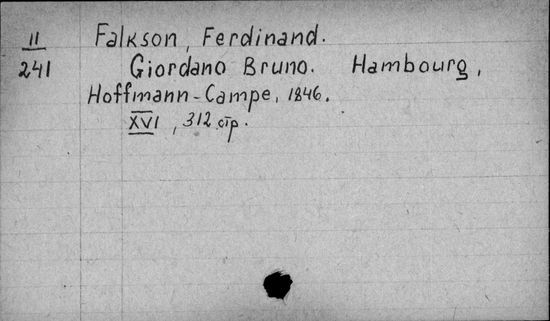 II
241
Falkson, Ferdinand.
Giordano Bruno. Hambourg,
Hoffmann-Campe, 1846.
XVI, 312 стр.